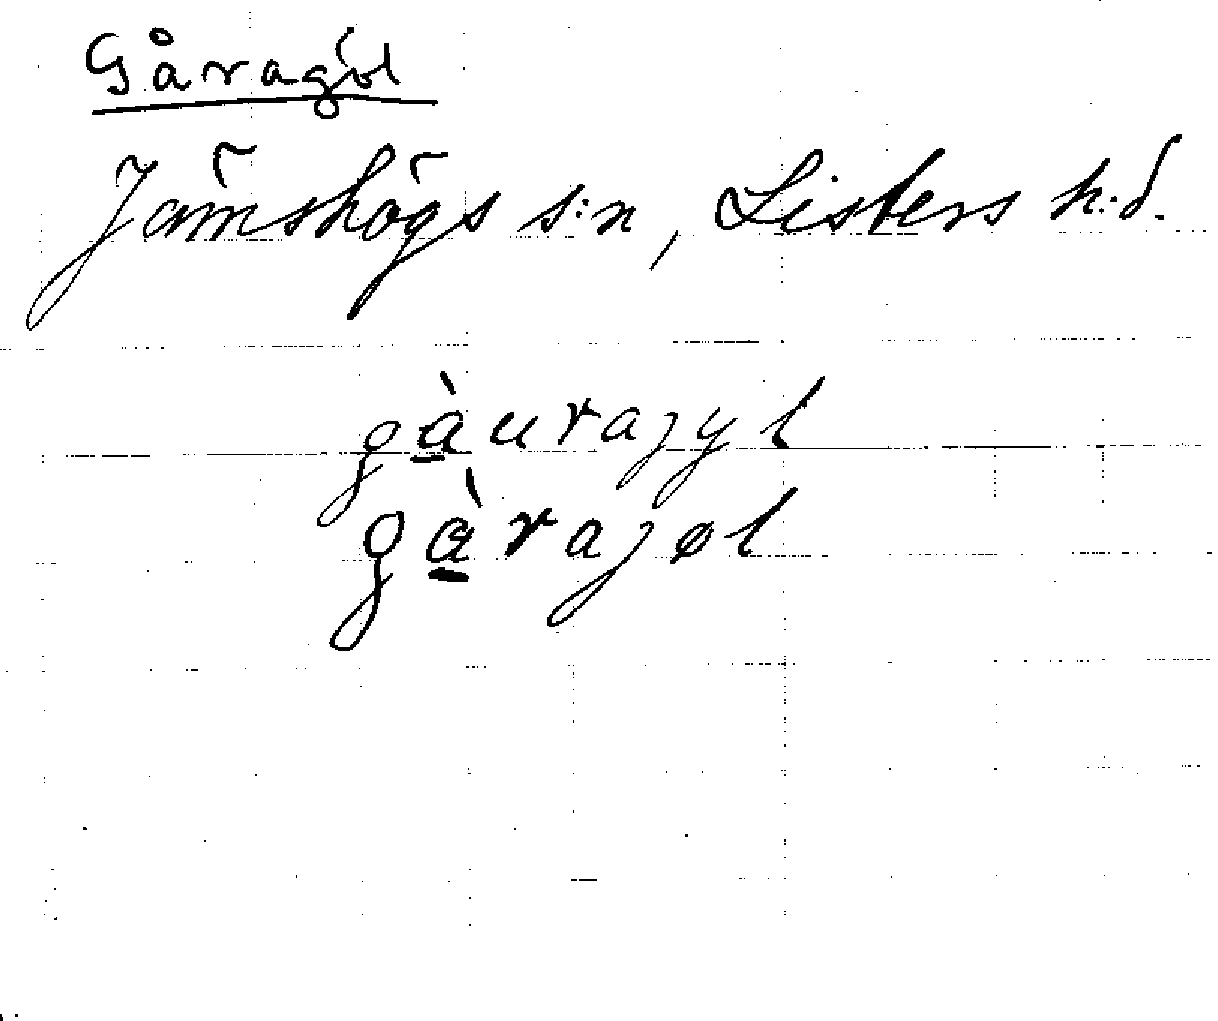 Gåragöl
Jämshögs s:n, Listers h:d.
gàurajyl
gàrajøl